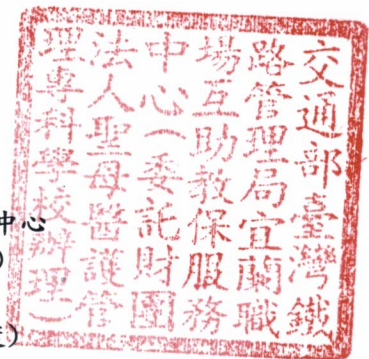 交通部臺灣鐵
路管理局宜蘭職
場互助教保服務
中心（委託財團
法人聖母醫護管
理專科學校辦理）
中心
)
)